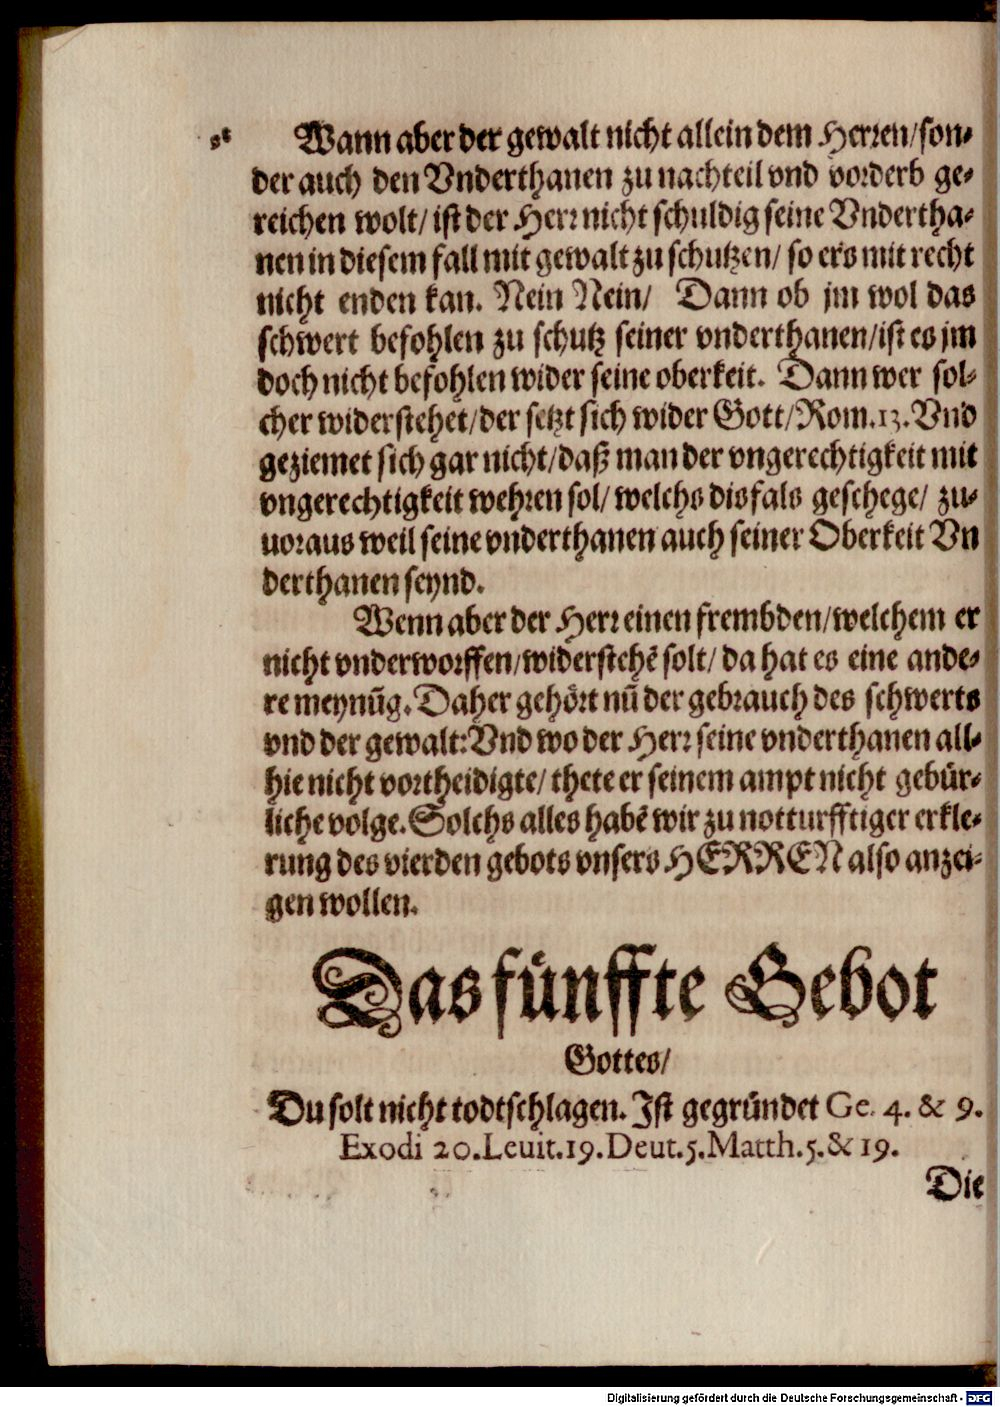 Wann aber der gewalt nicht allein dem Herren/son-
der auch den Vnderthanen zu nachteil vnd vorderb ge-
reichen wolt/ ist der Herr nicht schuldig seine Vndertha-
nen in diesem fall mit gewalt zu schutzen/ so ers mit recht
nicht enden kan. Nein Nein/ Dann ob jm wol das
schwert befohlen zu schutz seiner vnderthanen/ist es jm
doch nicht befohlen wider seine oberkeit. Dann wer sol-
cher widerstehet/der setzt sich wider Gott/Rom.13.Vnd
geziemet sich gar nicht/daß man der vngerechtigkeit mit
vngerechtigkeit wehren sol/ welchs disfals geschege/ zu-
uoraus weil seine vnderthanen auch seiner Oberkeit Vn
derthanen seynd.
Wenn aber der Herr einen frembden/welchem er
nicht vnderworffen/widerstehē solt/ da hat es eine ande-
re meynūg. Daher gehört nū der gebrauch des schwerts
vnd der gewalt: Vnd wo der Herr seine vnderthanen all-
hie nicht vortheidigte/ thete er seinem ampt nicht gebür-
liche volge. Solchs alles habē wir zu notturfftiger erkle-
rung des vierden gebots vnsers HERREN also anzei-
gen wollen.
Das fünffte Gebot
Gottes/
Du solt nicht todtschlagen. Ist gegründet Ge. 4. & 9.
Exodi 20.Leuit.19.Deut.5.Matth.5.& 19.
Die
Digitalisierung gefördert durch die Deutsche Forschungsgemeinschaft - DFG